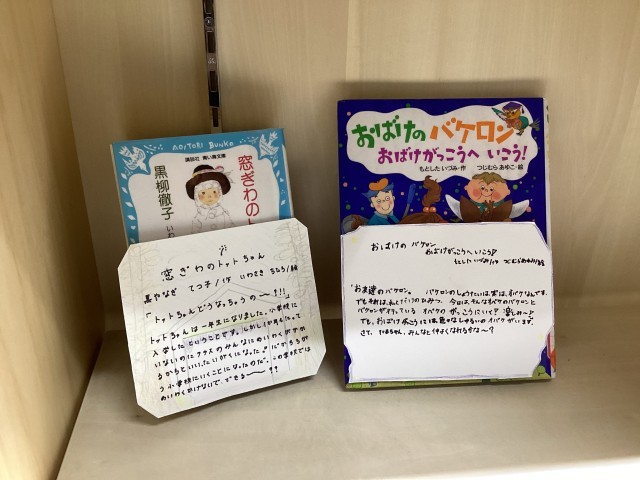 AOITORI BUNKO
講談社 青い鳥文庫
窓ぎわの
黒柳徹子
窓ぎわのトットちゃん
黒やなぎ てつ子/作 いわさき ちひろ/絵
「トットちゃんどうなっちゃうの〜?!!」
トットちゃんは一年生になりました。小学校に
入学したということです。しかし1か月もたって
いないのにクラスのみんなに
う小学校にいくことになったのだ。この学校では
めいわくかけないで、できる〜??
おばけのバケロン
おばけがっこうへ いこう!
もとした いづみ・作 つじむら あゆこ・絵
おばけの バケロン
おばけがっこうへ いこう
もとした いづみ/作 つじむらあゆこ/絵
お友達のバケロン。 バケロンのしょうたいは、実は、オバケなんです。
でもそれは、わたしだけのひみつ。今日は、そんなオバケのバケロンと
バケロンが行っている オバケの がっこうにいく? 楽しみ〜♪
でも、おばけがっこうには、見かけないしゅるいのオバケがいます。
さて、たまちゃん、みんなと仲よくなれるかな〜?